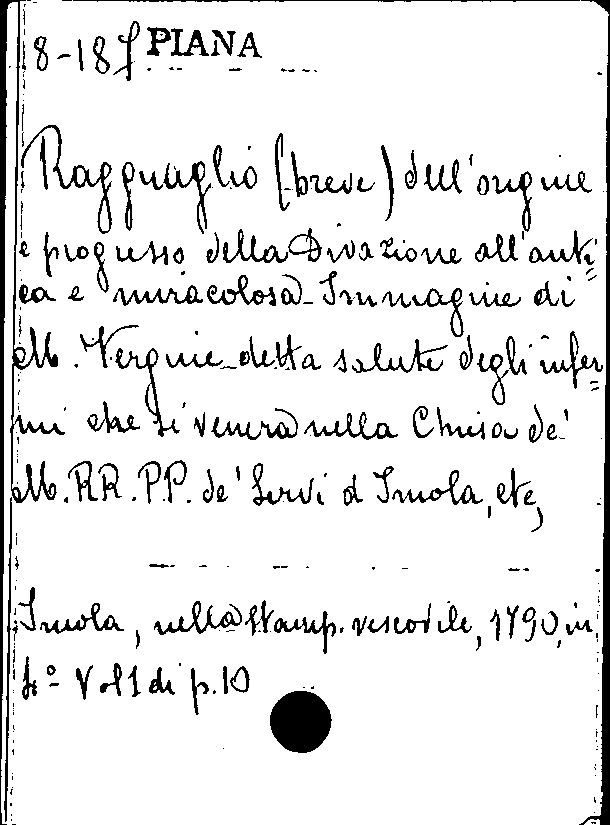 18-18f PIANA
Ragguaglio (breve) dell'origine
e progresso della Divozione all'anti=
ca e miracolosa Immagine di
M. Vergine detta salute degli infer=
mi che si venera nella Chiesa de'
M.RR.PP. de' Servi d Imola, etc,
Imola, nella stamp. vescovile, 1790, in
4º Vol 1 di p. 10